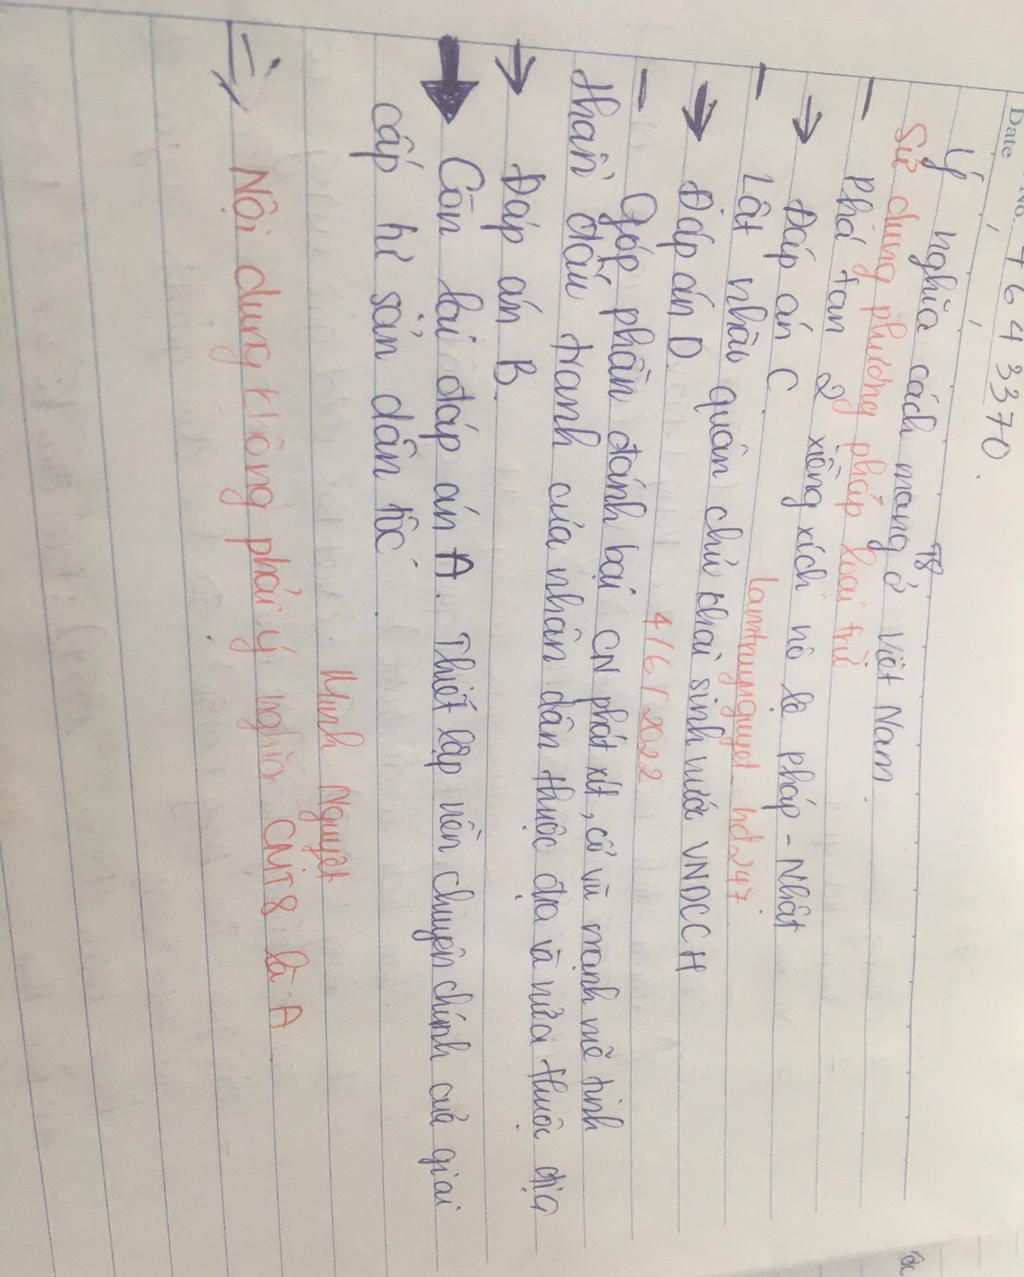 No. 7643370.
Date
Ý nghĩa cách mạng T8 ở Việt Nam.
Sử dụng phương pháp loại trừ
- Phá tan 2 xiềng xích nô lệ pháp - Nhật
→ Đáp án C
lamtrungnguyet_hd247
- Lật nhào quân chủ khai sinh nước VNDCCH
→ Đáp án D.
4/6/2022
- Góp phần đánh bại CN phát xít, cổ vũ mạnh mẽ tinh
thần đấu tranh của nhân dân thuộc địa và nửa thuộc địa
→ Đáp án B.
→ Còn lại đáp án A. Thiết lập nền chuyên chính của giai
cấp hư sản dân tộc.
Minh Nguyệt
=> Nội dung không phải ý nghĩa CMT8 là A.